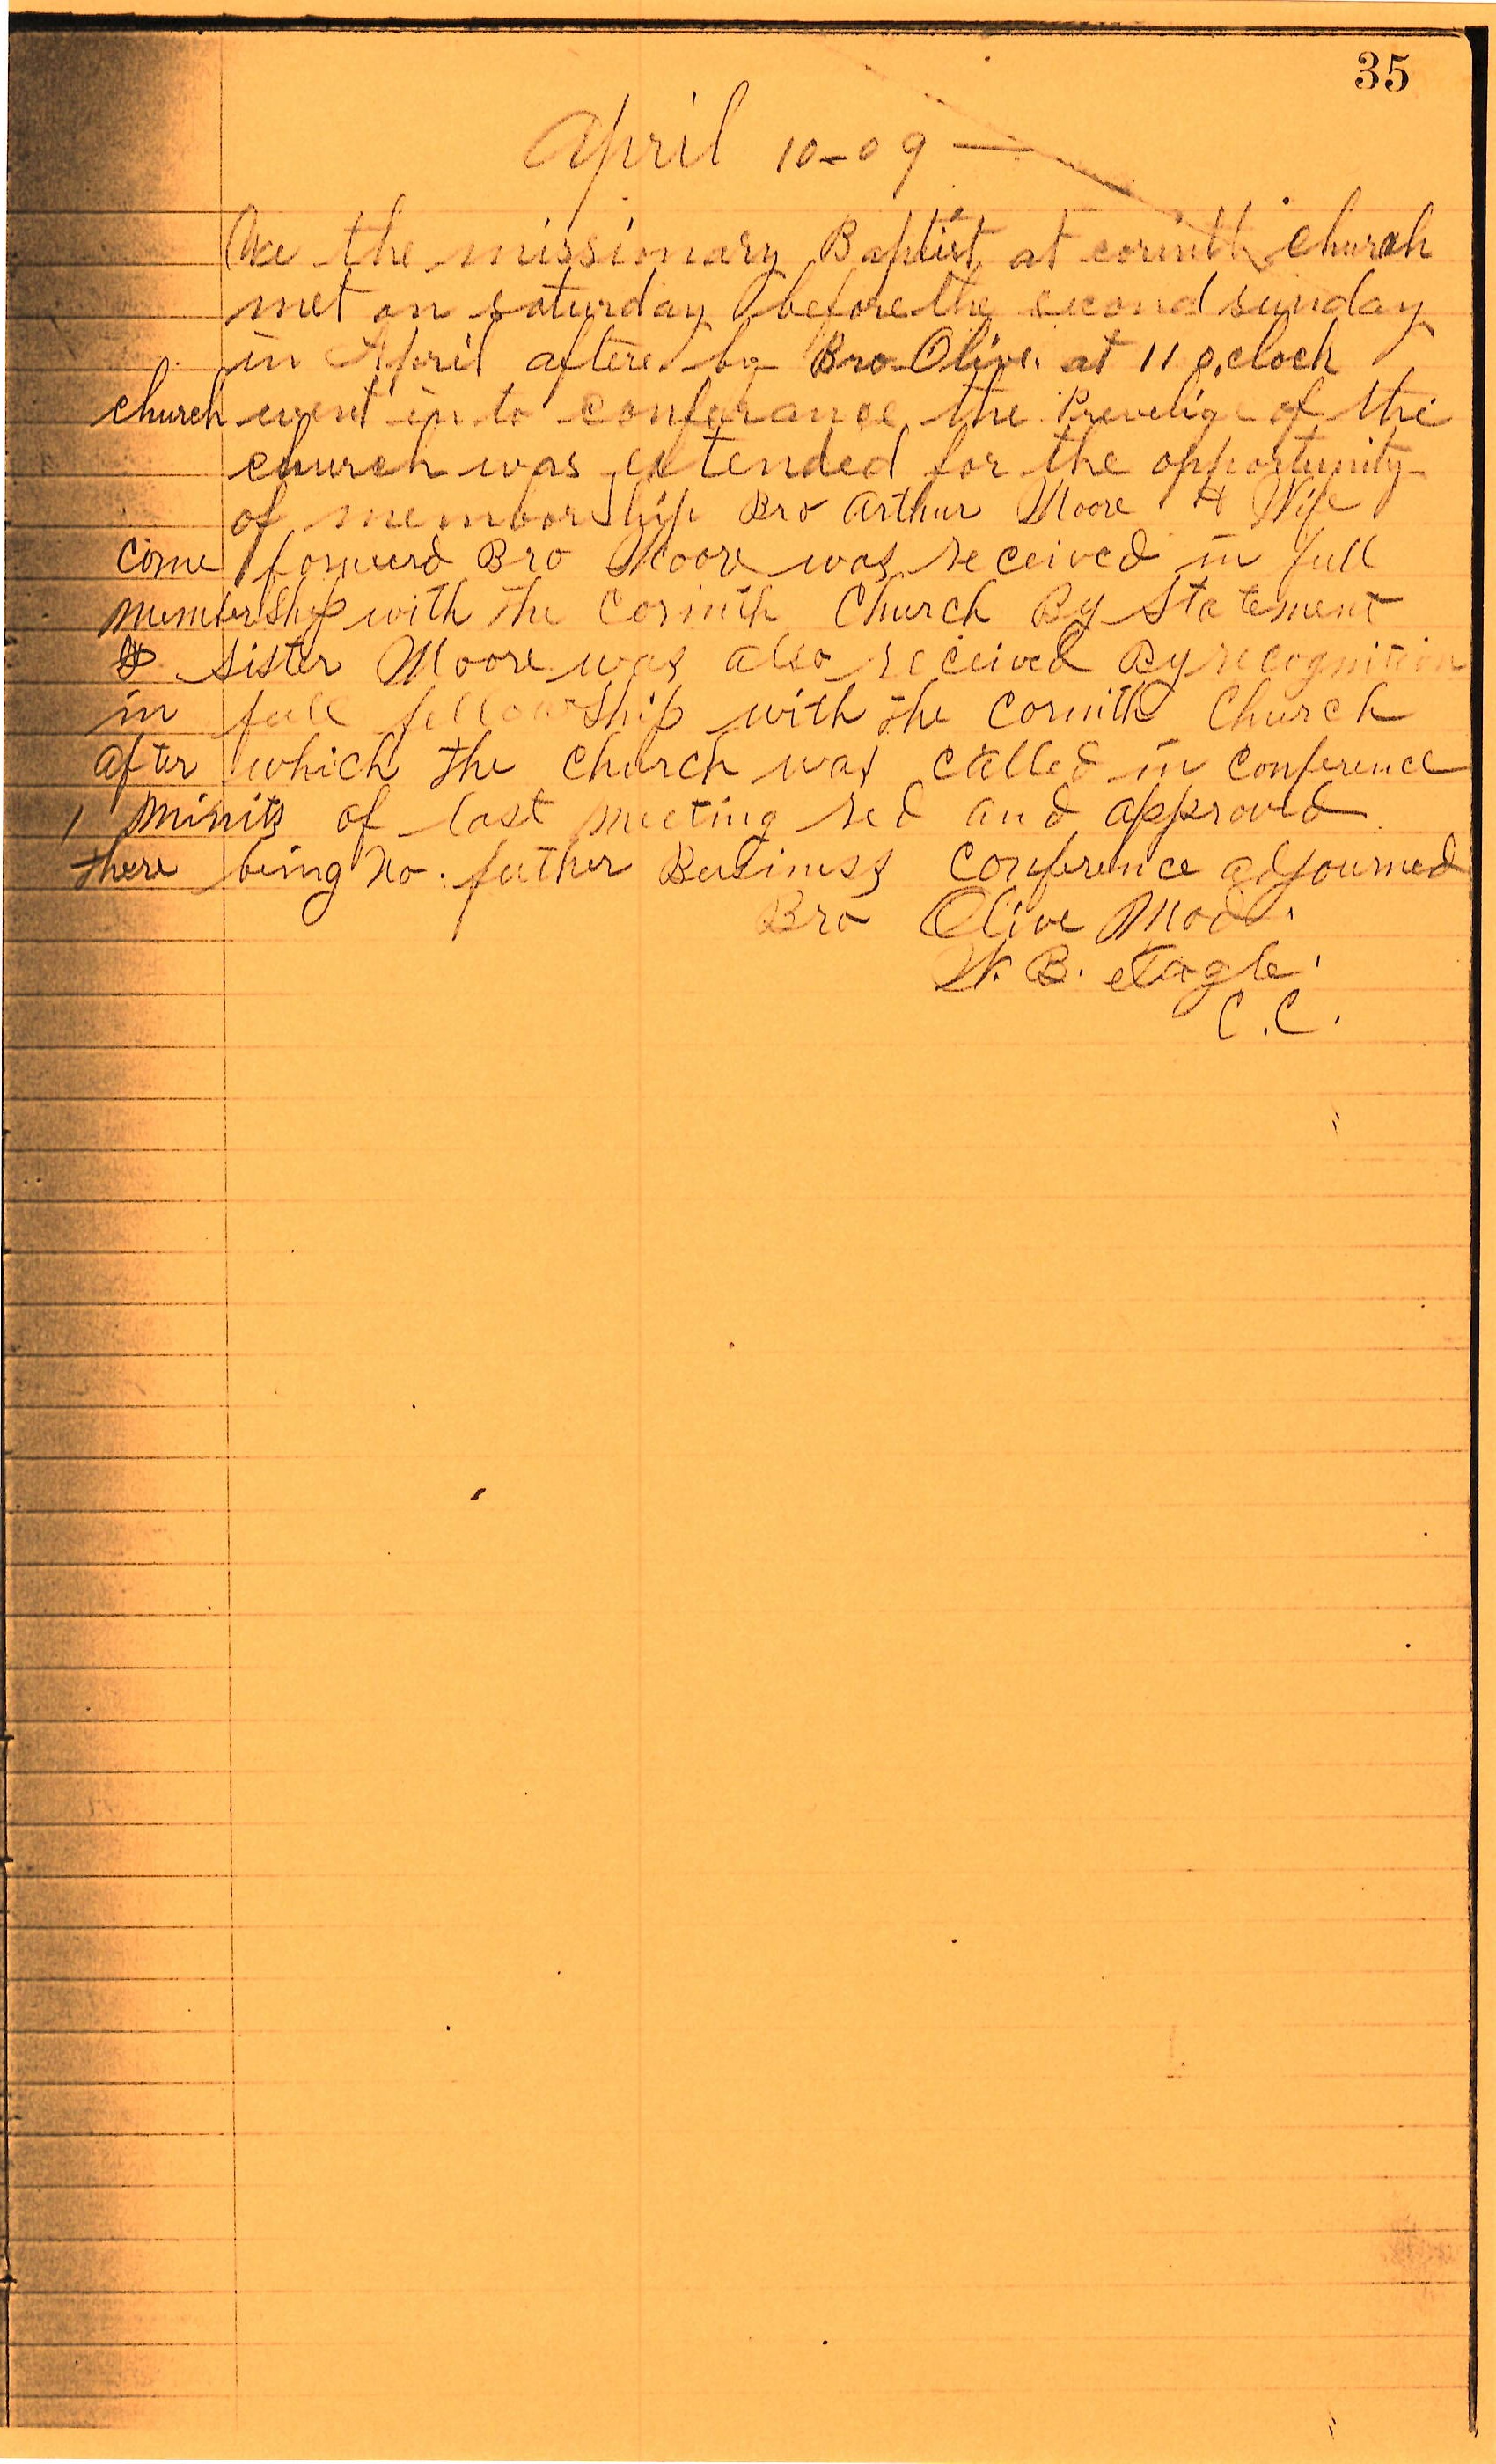 35
April 10-09
We the missionary Baptist at corinth church
met on saturday before the second sunday
in April after by Bro Olive. at 11 o,cloch
church went in to conferance the Prevelige of the
church was extended for the opportunity
of membership Bro Arthur Moore & Wife
Come forward Bro Moore was received in full
membership with the Corinth Church By Statement
& Sister Moore was also received By recognition
in full fellowship with the Corinth Church
after which the Church was called in Conference
minits of last meeting red and approved
there being no. futher Business Conference adjourned
Bro Olive Mod.
W. B.
C.C.